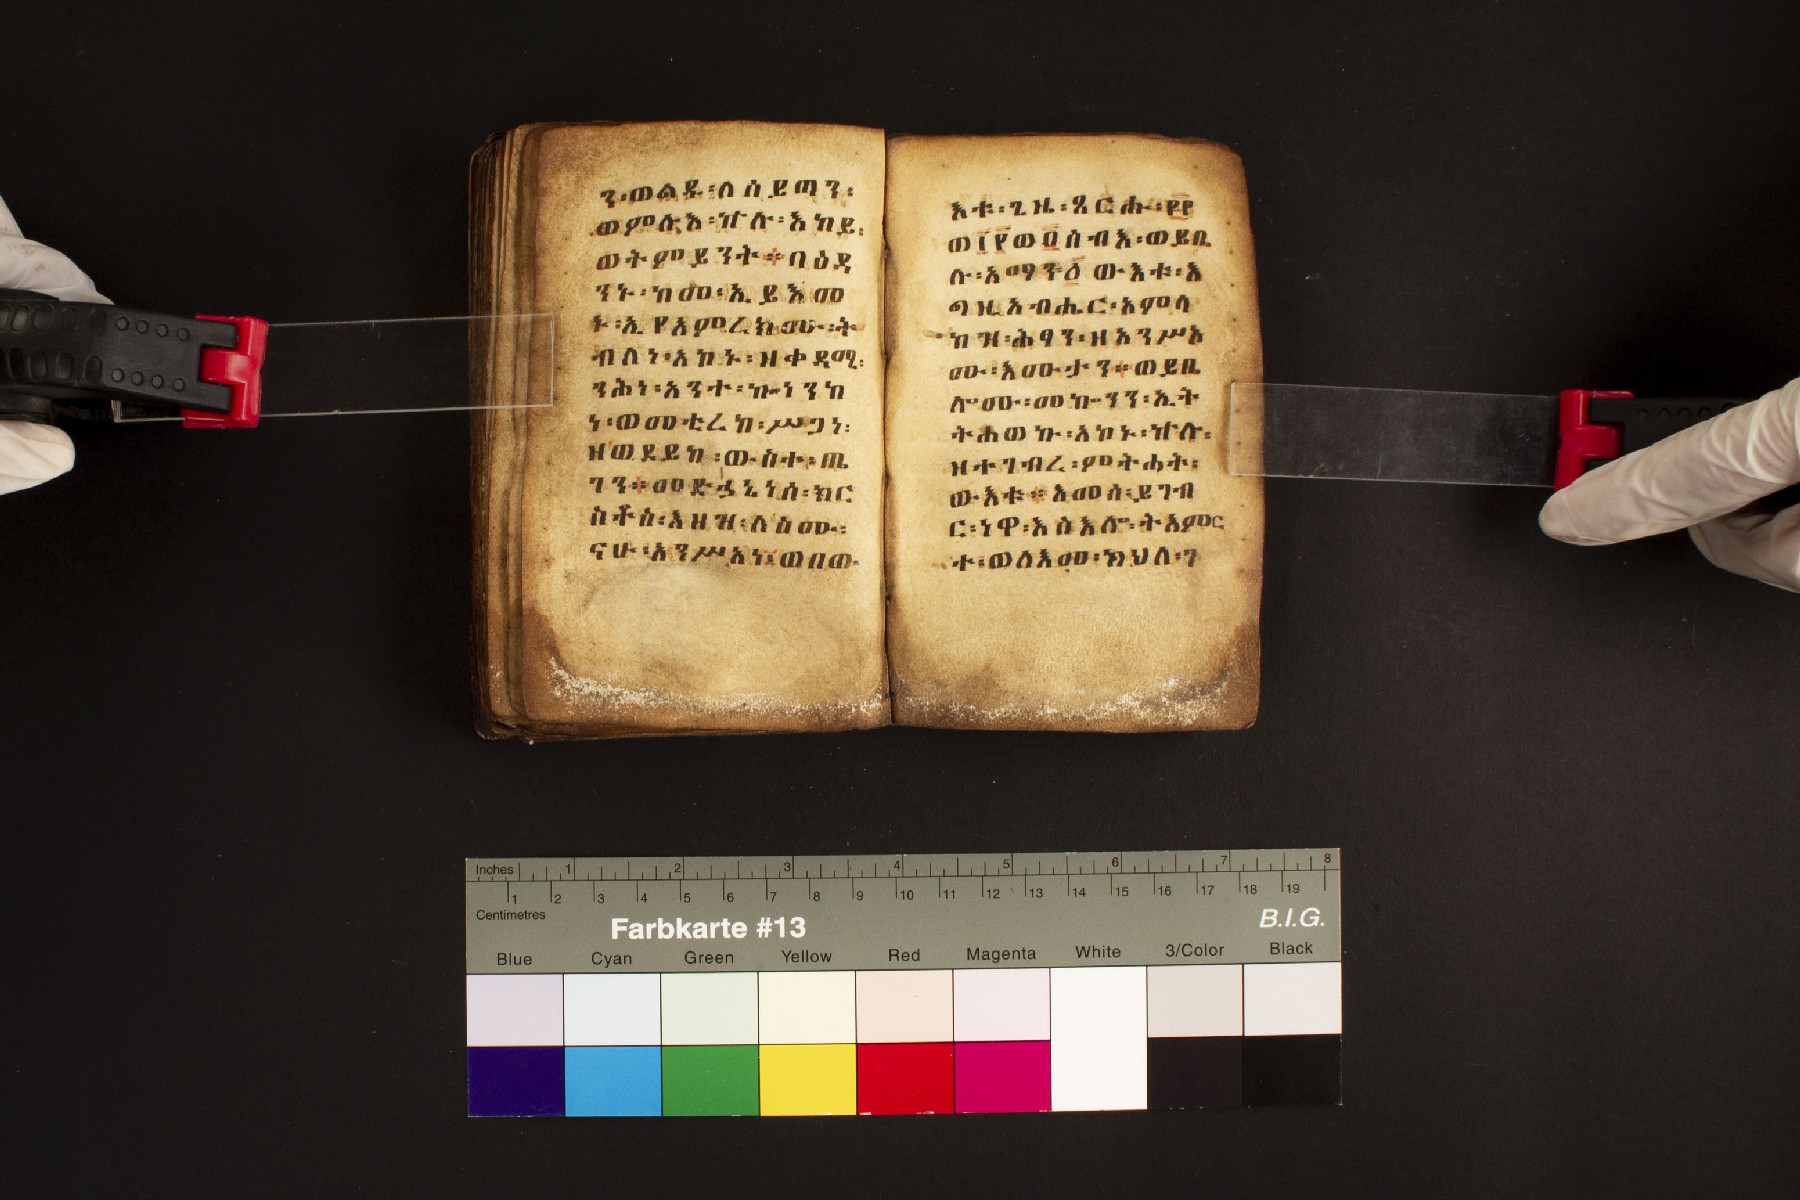 ን፡ወልዱ፡ለሰይጣን፡
ወምሉእ፡ኵሉ፡እከይ፡
ወትምይንት፨በዕዳ
ንኑ፡ከመ፡ኢይእመ
ኑ፡ኢየአምረክሙ፡ት
ብለነ፡አኮኑ፡ዘቀዳሚ፡
ንሕነ፡አንተ፡ኰነንከ
ነ፡ወመቲረከ፡ሥጋነ፡
ዘወደይከ፡ውስተ፡ጤ
ገን፨መድኃኒነሰ፡ክር
ስቶስ፡እዘዝ፡ለስሙ፡
ናሁ፡አንሥአነ፡ወበው
እቱ፡ጊዜ፡ጸርሑ፡፸፻
ወ፲፻ወ፬ሰብእ፡ወይቤ
ሉ፡አማን፩ውእቱ፡እ
ግዚአብሔር፡አምላ
ከ ዝ፡ሕፃን፡ዘአንሥአ
ሙ፡እሙታን፨ወይቤ
ሎሙ፡መኰንን፡ኢት
ትሐወኩ፡አኮኑ፡ኵሉ፡
ዝተገብረ፡ምትሐት፡
ውእቱ፨እመሰ፡ይገብ
ር፡ነዋ፡እስእሎ፡ትእምር
ተ፡ወለእመ፡ክህለ፡ገ
Inches 1 2 3 4 5 6 7 8
1 2 3 4 5 6 7 8 9 10 11 12 13 14 15 16 17 18 19
Centimetres
Farbkarte #13
B.I.G.
Blue Cyan Green Yellow Red Magenta White 3/Color Black